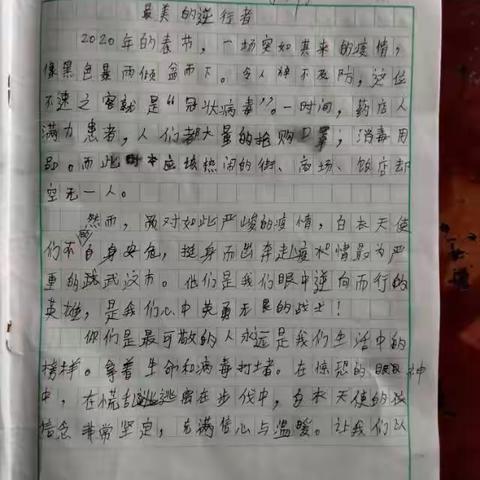 最美的逆行者
2020年的春节，一场突如其来的疫情，
像黑色暴雨倾盆而下。令人猝不及防，这位
不速之客就是“冠状病毒”。一时间，药店人
满为患者，人们都大量的抢购口罩，消毒用
品。而此时本应该热闹的街、商场、饭店却
空无一人。
然而，面对如此严峻的疫情，白衣天使
们不顾自身安危，挺身而出奔赴疫情最为严
重的武汉市。他们是我们眼中逆向而行的
英雄，是我们心中英勇无畏的战士！
你们是最可敬的人永远是我们生活中的
榜样。拿着生命和病毒打者。在惊恐的眼神
中，在慌乱逃离在步伐中，白衣天使的
信念非常坚定，充满信心与温暖。让我们以